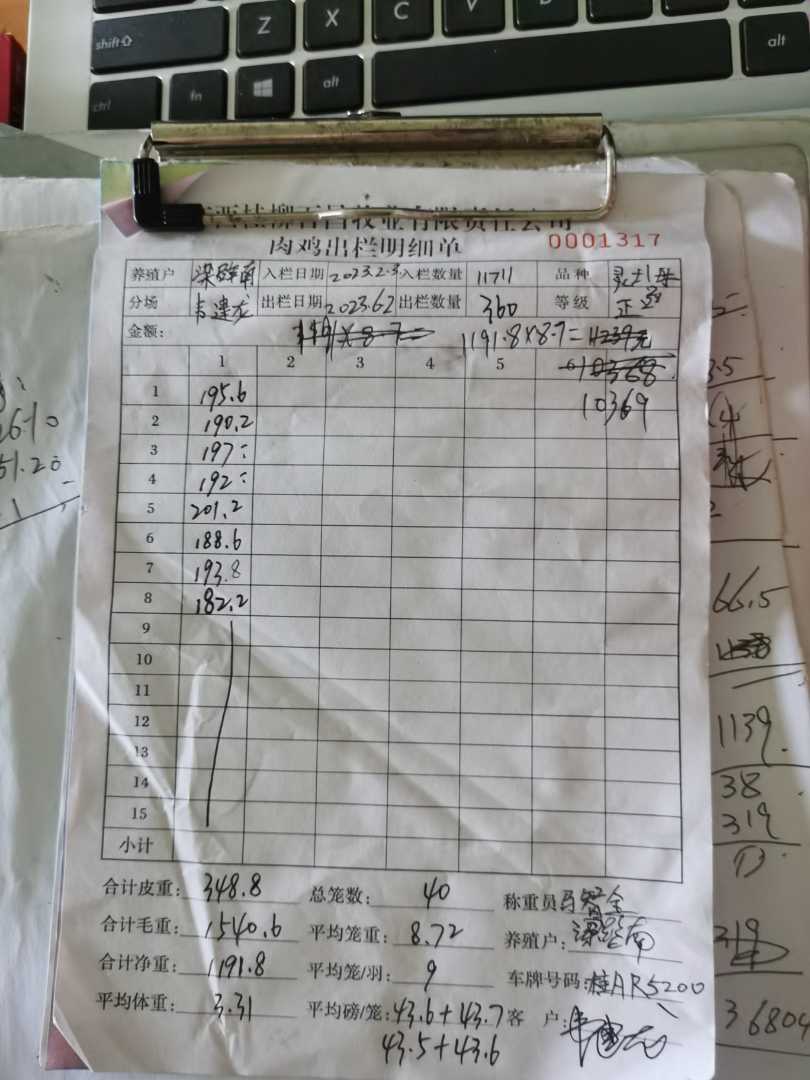 shift Z X C V B N M
ctrl fn alt alt
牧业有限责任公司
肉鸡出栏明细单 0001317
养殖户 入栏日期 2023.2.3 入栏数量 11711 品种
分场 韦建龙 出栏日期 2023.6.2 出栏数量 360 等级 正
金额: 1191.8×8.7=11239元
1 2 3 4 5 6 10368
1 195.6 10369
2 190.2
3 197:
4 192:
5 201.2
6 188.6
7 193.8
8 182.2
9
10
11
12
13
14
15
小计
合计皮重: 348.8 总笼数: 40 称重员
合计毛重: 1540.6 平均笼重: 8.72 养殖户:
合计净重: 1191.8 平均笼/羽: 9 车牌号码: 桂AR5200
平均体重: 3.31 平均磅/笼: 43.6+43.7 客户:
43.5+43.6
3.5
66.5
1139
38
319
319
36804